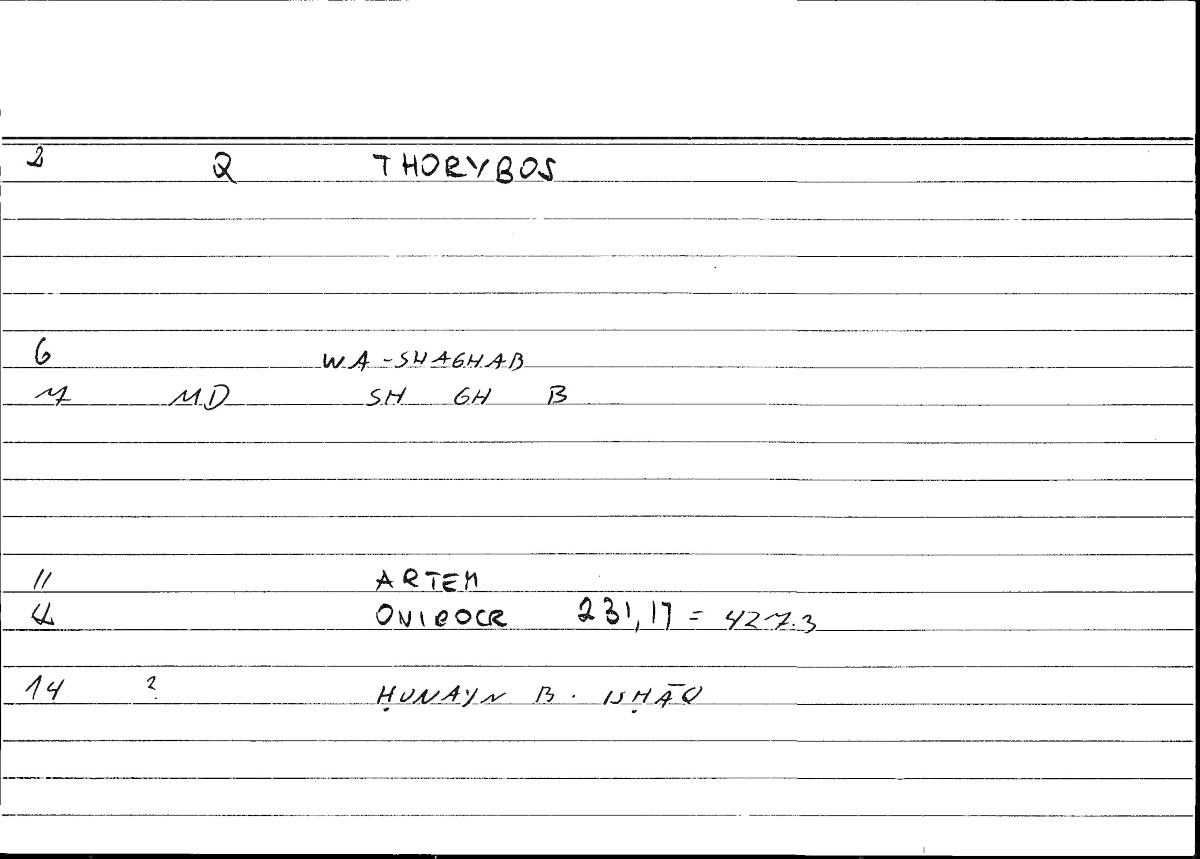 2 Q THORYBOS
6 WA-SHAGHAB
7 MD SH GH B
11 ARTEM
12 ONIROCR 231,17 = 427.3
14 ? ḤUNAYN B. ISḤĀQ